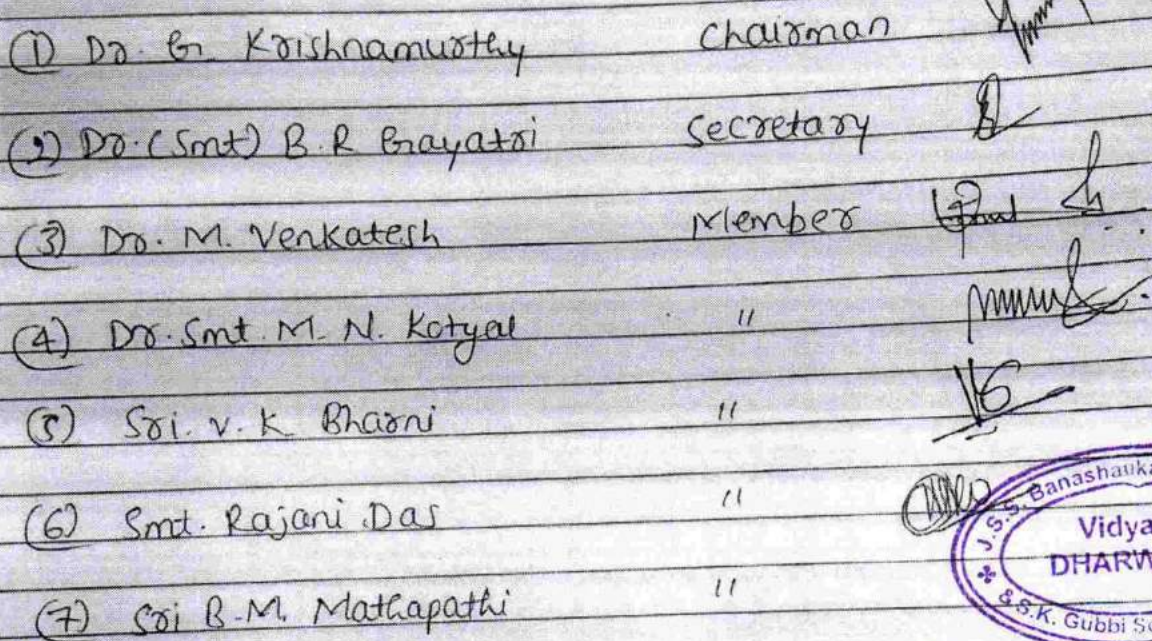 (1) Dr. G. Krishnamurthy Chairman
(2) Dr. (Smt) B. R Gayatri Secretary
(3) Dr. M. Venkatesh Member
(4) Dr. Smt. M. N. Kotyal "
(5) Sri. V. K Bharni "
(6) Smt. Rajani Das "
(7) Sri B. M. Mathapathi "
J.S.S. Banashauka
Vidya
DHARW
& S.K. Gubbi Sc